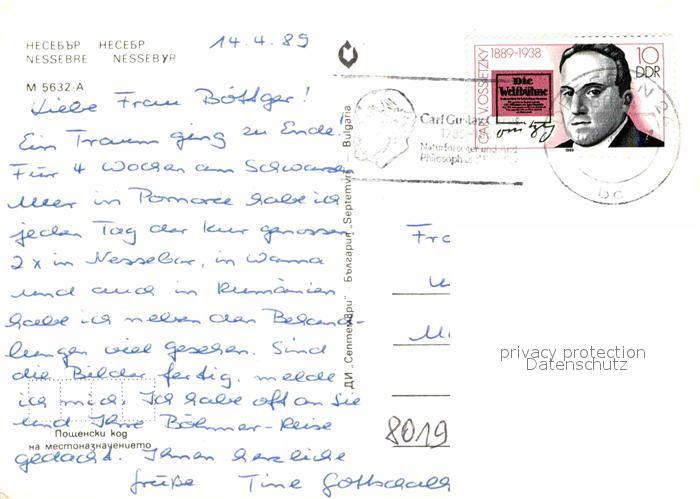 НЕСЕБЪР НЕСЕБР
NESSEBRE NESSEBYR
14.4.89
M 5632-A
Liebe Frau Böttger!
Ein Traum ging zu Ende.
Für 4 Wochen am Schwarzen
Meer in Pomorie habe ich
jeden Tag der Kur genossen.
2 x in Nessebar, in Warna
und auch in Rumänien
habe ich neben den Behand-
lungen viel gesehen. Sind
die Bilder fertig, melde
ich mich. Ich habe oft an Sie
und Ihre Böhmer-Reise
gedacht. Ihnen herzliche
Grüße Tine Gottschalk
Пощенски код
на местоназначението
ДИ „Септември" - България „Septemvri" - Bulgaria
CARL V. OSSIETZKY 1889-1938
10
DDR
Die
Weltbühne
1989
Carl Gustav
Naturforscher und Arzt
Philosoph
bc
Fra
8019
privacy protection
Datenschutz